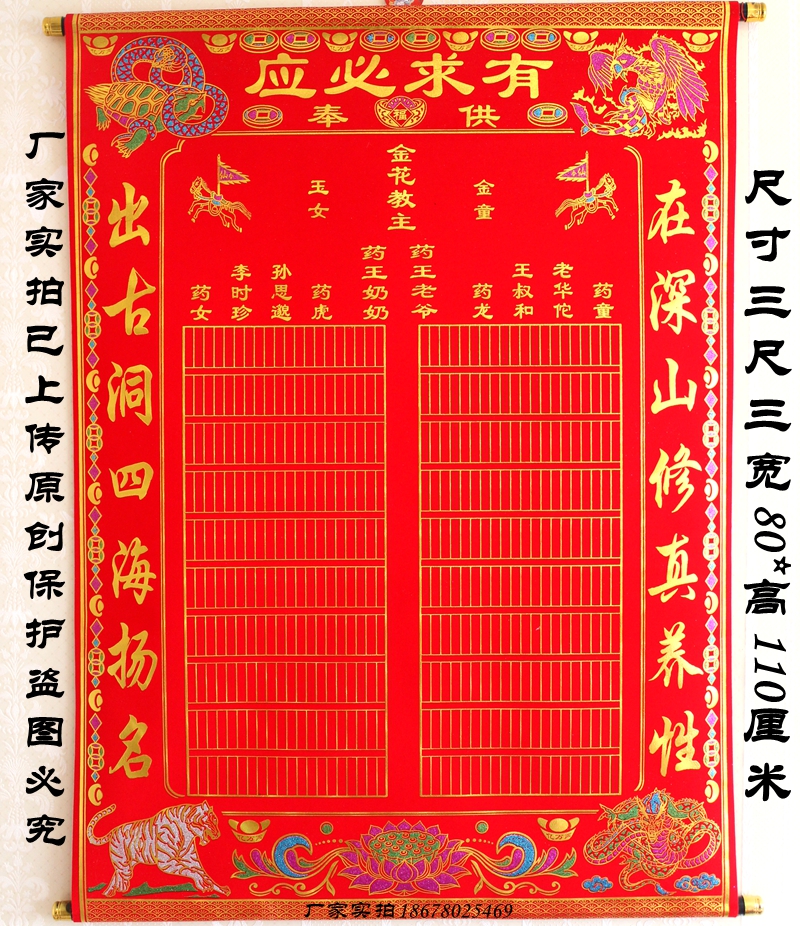 有求必应
供奉
金花教主
金童
玉女
药王老爷
药王奶奶
药童
老华佗
王叔和
药龙
药虎
孙思邈
李时珍
药女
在深山修真养性
出古洞四海扬名
尺寸三尺三宽80*高110厘米
厂家实拍已上传原创保护盗图必究
厂家实拍18678025469